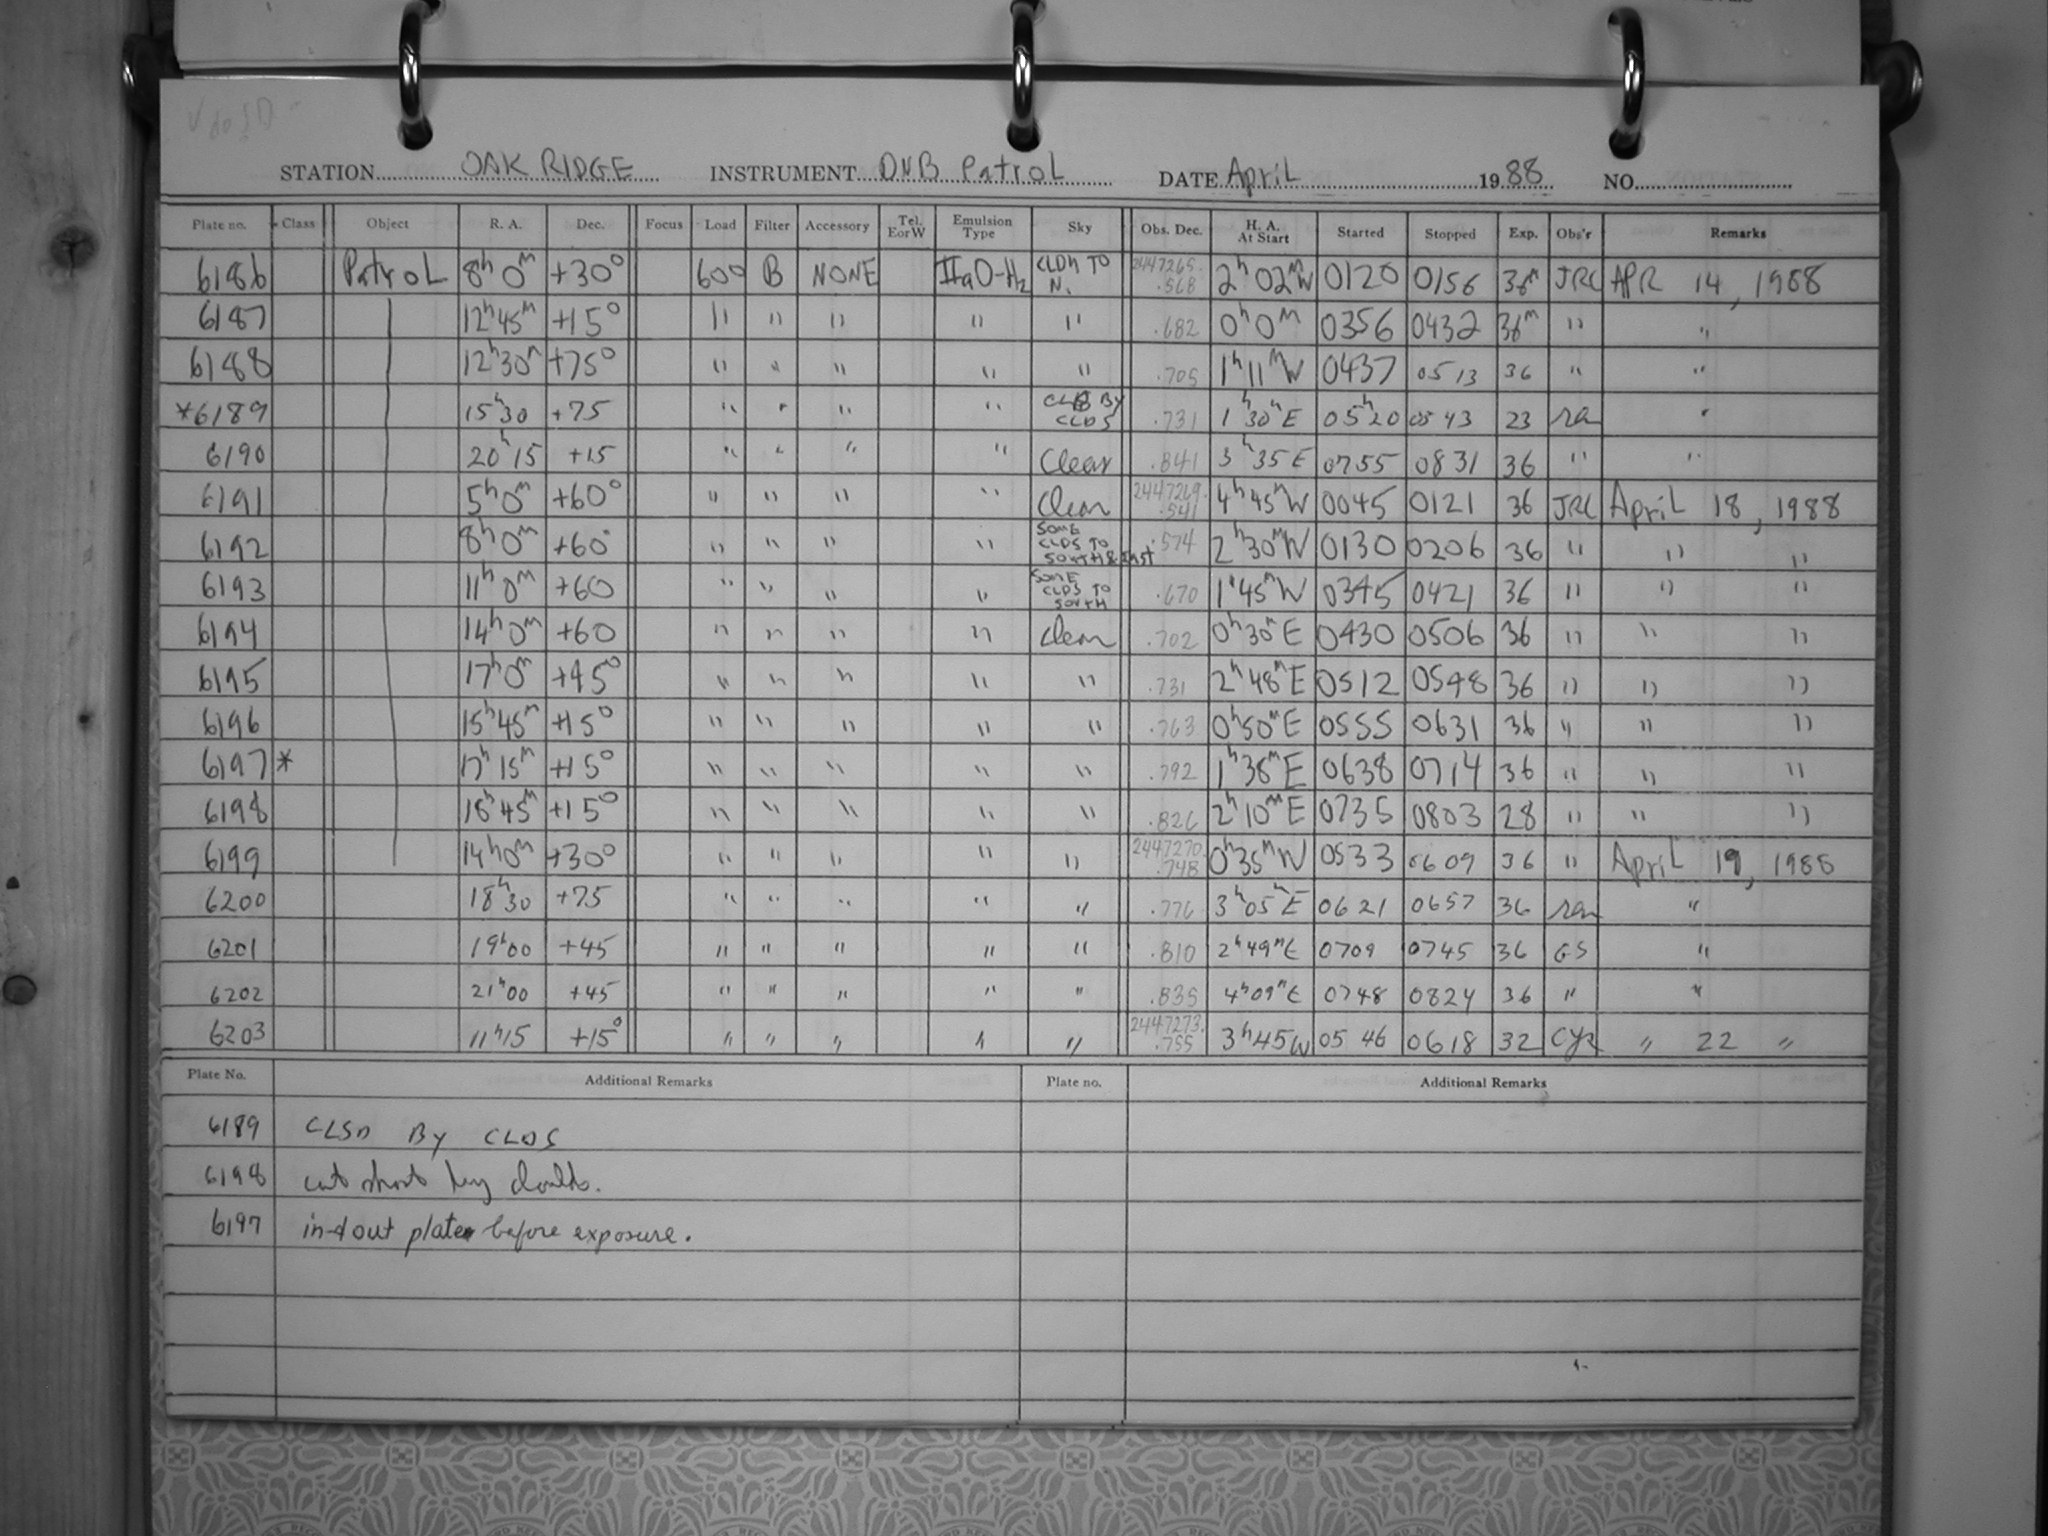 STATION OAK RIDGE INSTRUMENT DNB Patrol DATE April 1988 NO.
Plate no. Class Object R. A. Dec. Focus Load Filter Accessory Tel. EorW Emulsion Type Sky Obs. Dec. H. A. At Start Started Stopped Exp. Obs'r Remarks
6186 Patrol 8h 0m +30° 600 B NONE IIaO-H2 CLDY TO N. 2447265.568 2h 02m W 0120 0156 36m JRC APR 14, 1988
6187 12h 45m +15° " " " " " .682 0h 0m 0356 0432 36m " "
6188 12h 30m +75° " " " " " .705 1h 11m W 0437 0513 36 " "
*6189 15h 30 +75 " " " " CLSD BY CLDS .731 1h 30m E 05h20 0543 23 "
6190 20h 15 +15 " " " " Clear .841 3h 35 E 0755 0831 36 " "
6191 5h 0m +60° " " " " Clear 2447269.541 4h 45m W 0045 0121 36 JRC April 18, 1988
6192 8h 0m +60° " " " " SOME CLDS TO SOUTH & East .574 2h 30m W 0130 0206 36 " " "
6193 11h 0m +60 " " " " SOME CLDS TO SOUTH .670 1h 45m W 0345 0421 36 " " "
6194 14h 0m +60 " " " " Clear .702 0h 30m E 0430 0506 36 " " "
6195 17h 0m +45° " " " " " .731 2h 48m E 0512 0548 36 " " "
6196 15h 45m +15° " " " " " .763 0h 50m E 0555 0631 36 " " "
6197 * 17h 15m +15° " " " " " .792 1h 38m E 0638 0714 36 " " "
6198 18h 45m +15° " " " " " .826 2h 10m E 0735 0803 28 " " "
6199 14h 0m +30° " " " " " 2447270.748 0h 35m W 0533 0609 36 " April 19, 1988
6200 18h 30 +75 " " " " " .776 3h 05m E 0621 0657 36 "
6201 19h 00 +45 " " " " " .810 2h 49m E 0709 0745 36 GS "
6202 21h 00 +45 " " " " " .835 4h 09m E 0748 0824 36 " "
6203 11h 15 +15° " " " " " 2447273.755 3h 45 W 0546 0618 32 " 22 "
Plate No. Additional Remarks Plate no. Additional Remarks
6189 CLSD BY CLDS
6198 cut short by clouds.
6197 in-&out plate before exposure.